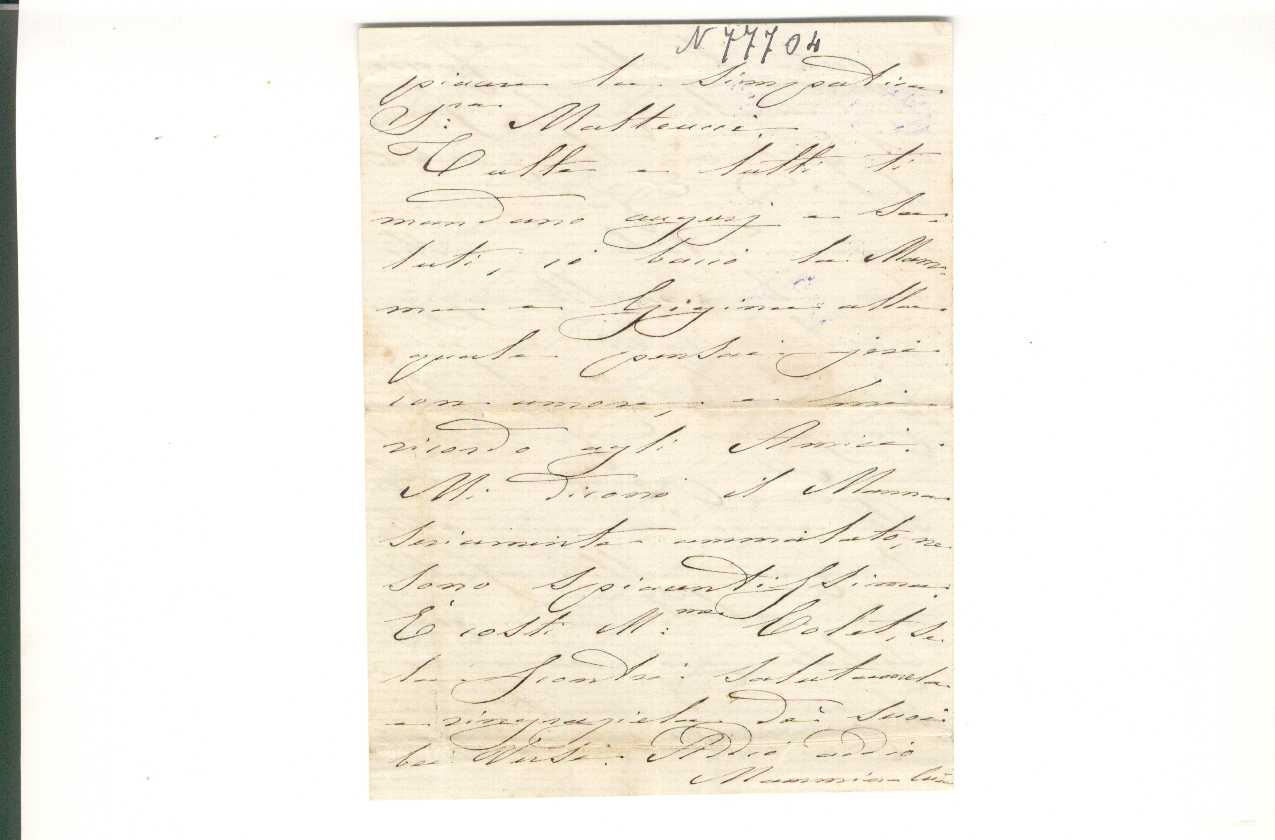 N 77704
piacere la simpatica
S:ra Matteucci
Tutte e tutti ti
mandano augurj e sa-
luti, io bacio la Mam-
ma e Gigina alla
quale pensai jeri
con amore, e mi
ricordo agli Amici.
Mi dicono il Manna
seriamente ammalato, ne
sono spiacentissima.
È costì M:me Colet, se
la scontri salutamela
e ringraziela de' suoi
bei Versi. Addio addio
Mammina tua